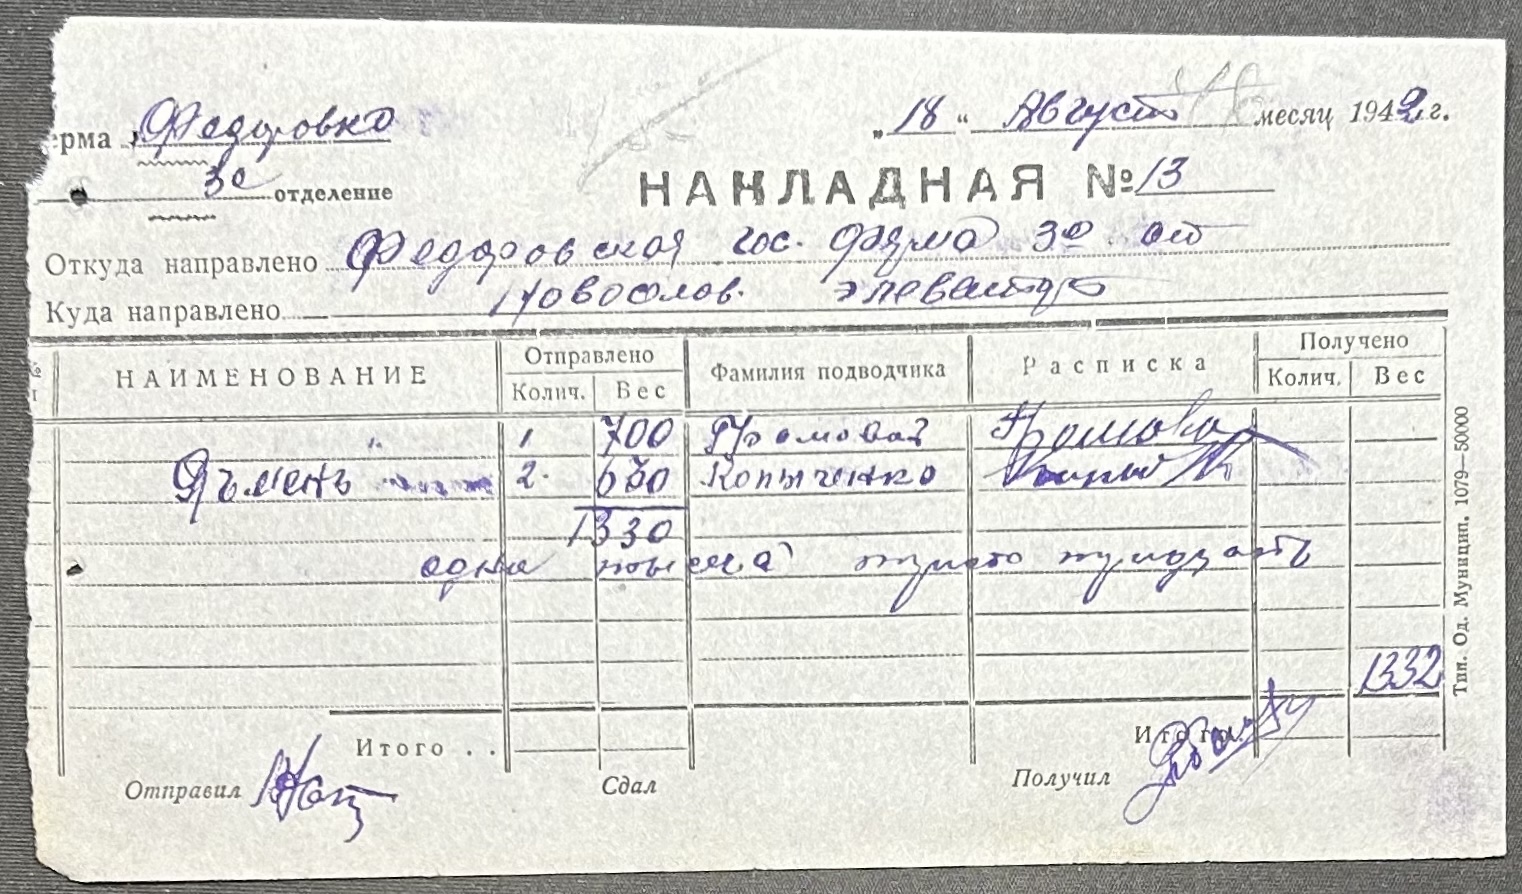 ерма Федоровка
„18“ Август месяц 1942 г.
3е отделение
НАКЛАДНАЯ № 13
Откуда направлено Федоровская гос. ферма 3е от
Куда направлено Новосолов. элеватор
№ НАИМЕНОВАНИЕ Отправлено Фамилия подводчика Расписка Получено
Колич. Вес Колич. Вес
" 1 700 Громовай
Ячмень 2. 630 Копыченко
1330
одна тысяча триста тридцать
1332
Итого . . Итого
Отправил Сдал Получил
Тип. Од. Муницип. 1079—50000